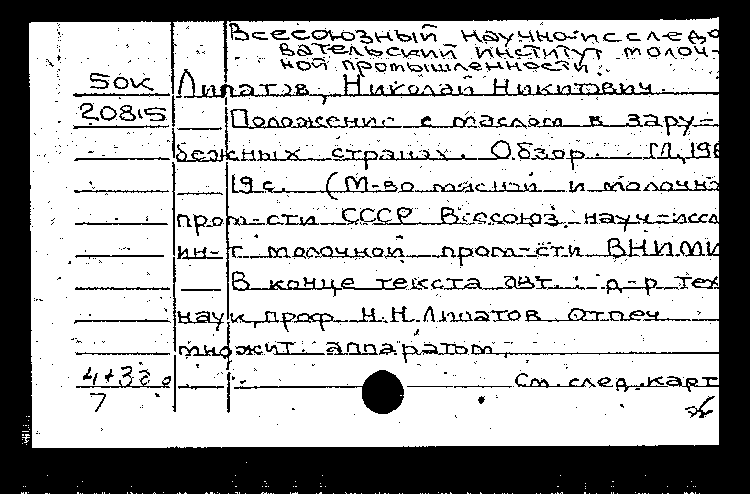 Всесоюзный научно-исследо
вательский институт молоч-
ной промышленности.
50к Липатов, Николай Никитович.
20815 Положение с маслом в зару-
бежных странах. Обзор. М., 196
19 с. (М-во мясной и молочно
пром-сти СССР Всесоюз. науч-иссл
ин-т молочной пром-сти ВНИМИ
В конце текста авт.: д-р тех
наук, проф. Н.Н. Липатов Отпеч
множит. аппаратом.
См. след. карт
7